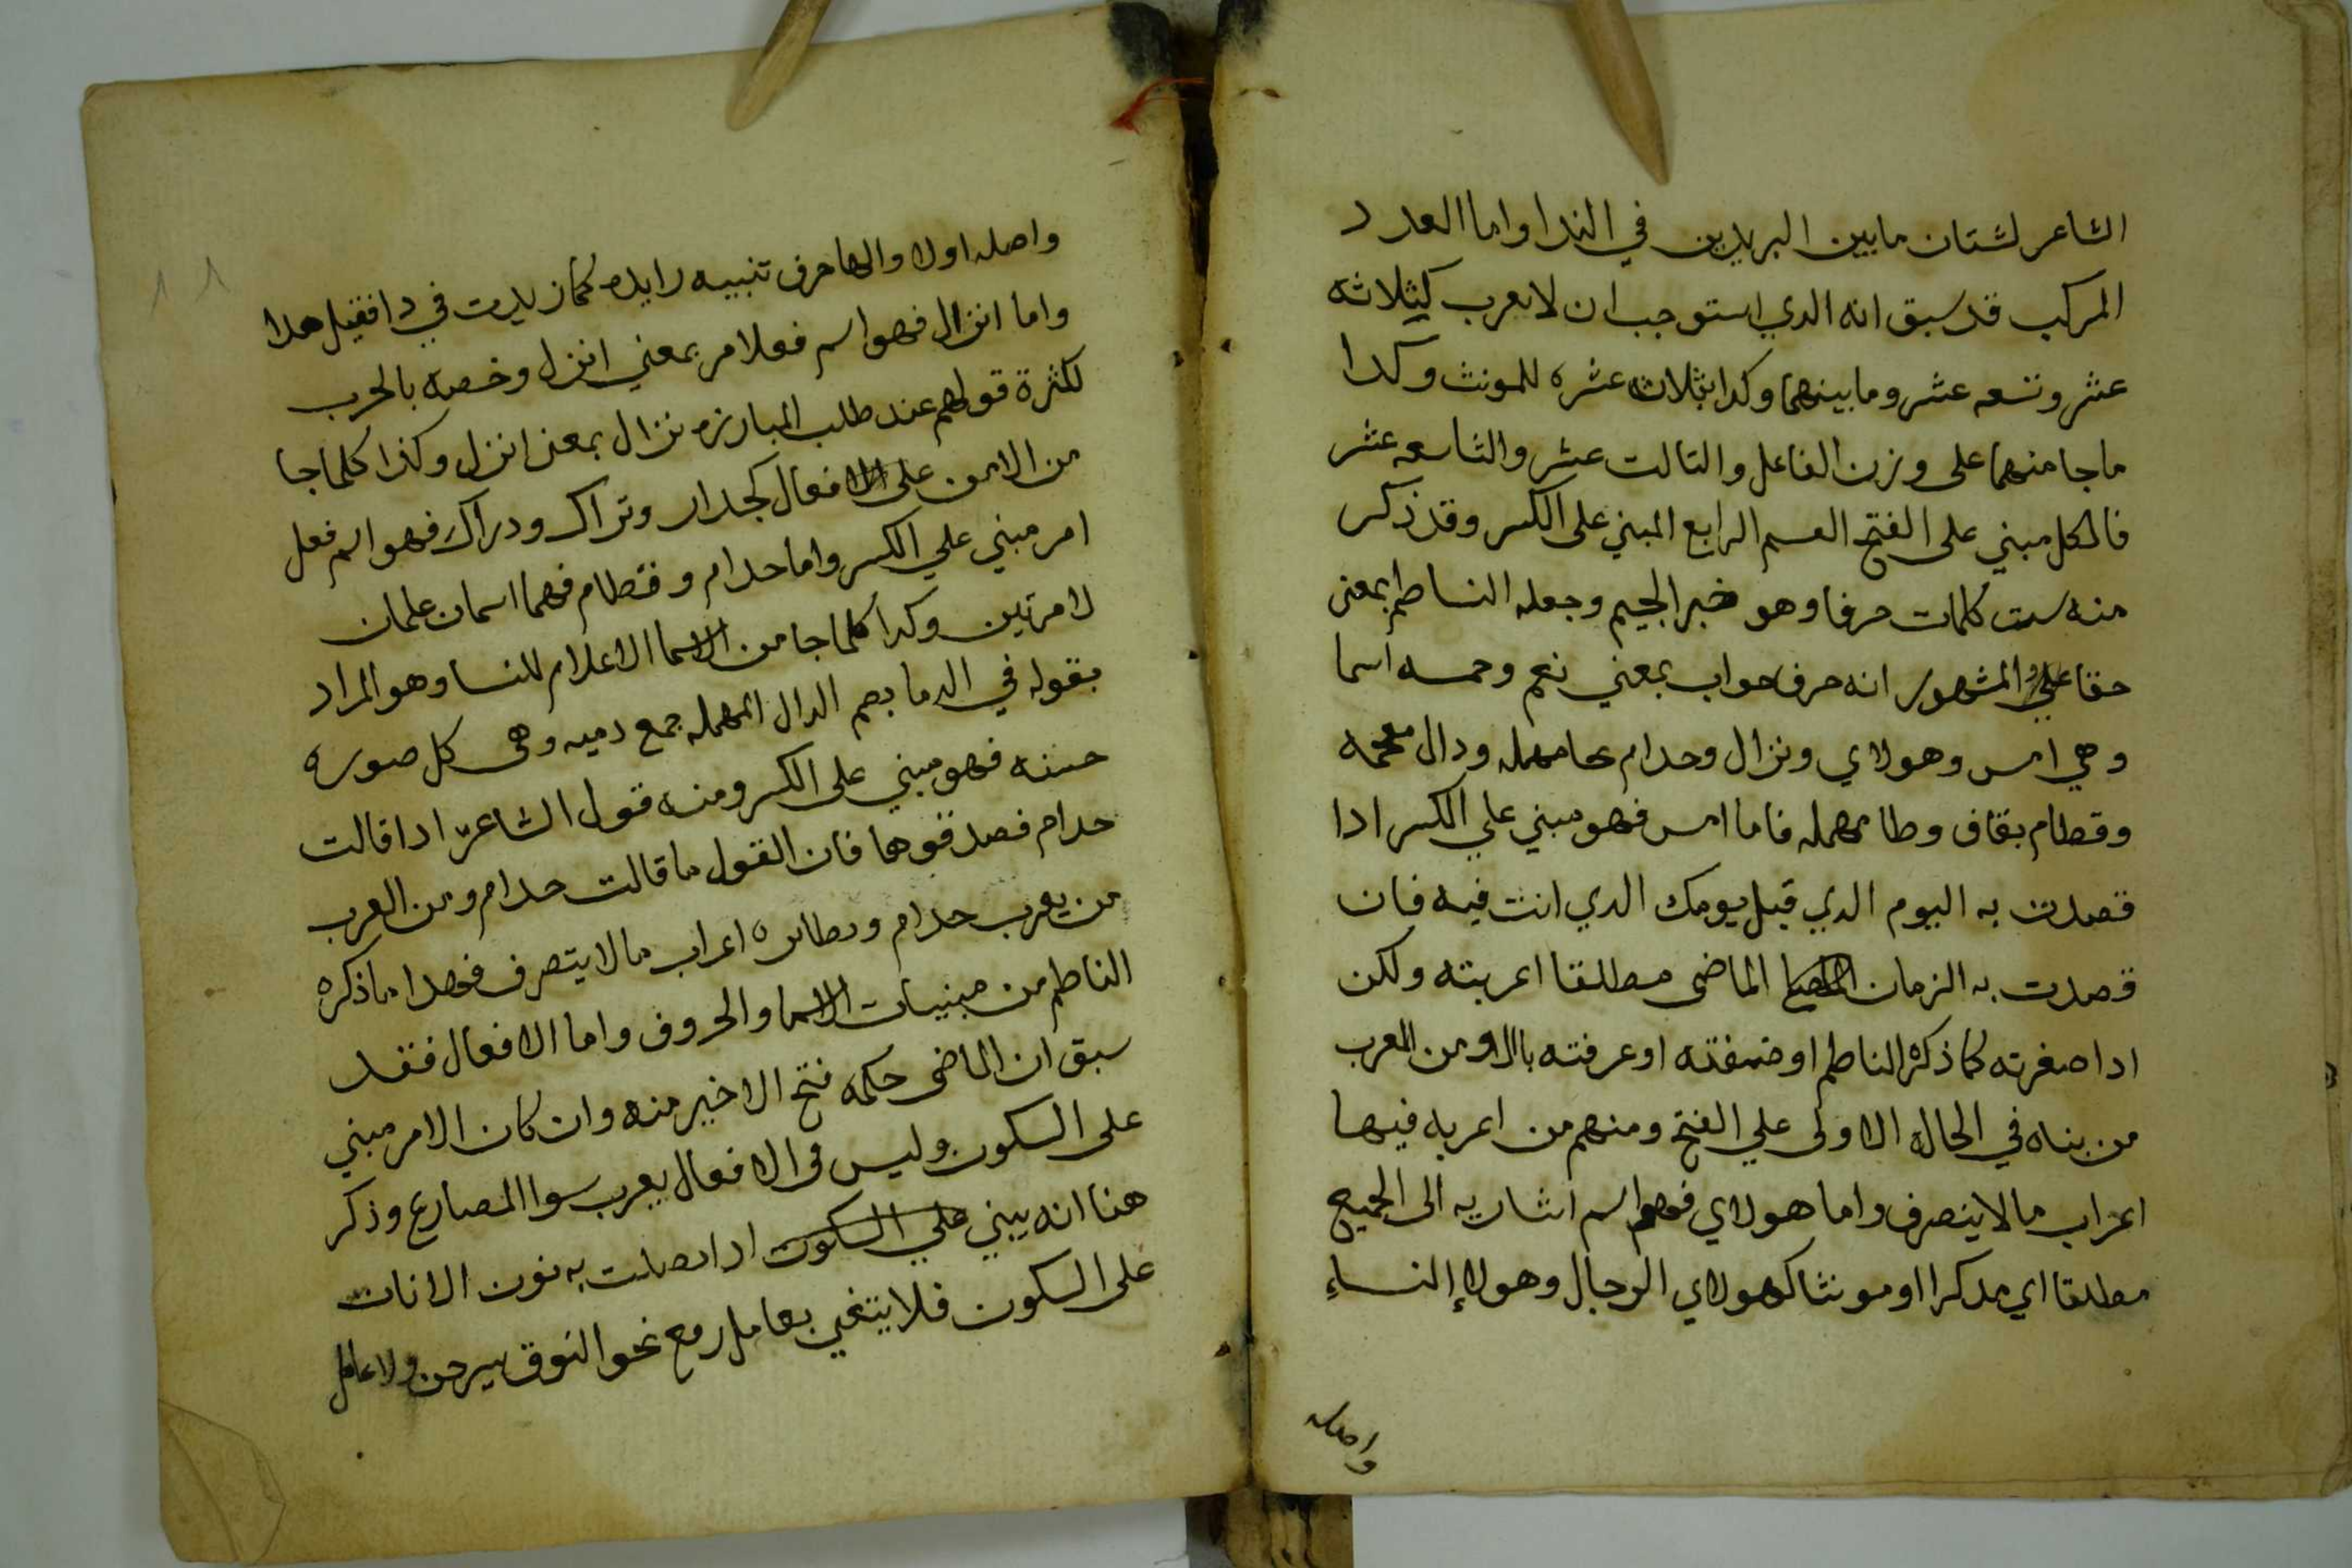 الشاعر لشتان مابين اليريدين في الندا واما العدد
المركب قد سبق انه الدي استوجب ان لا يعرب كثلاثه
عشر وتسعه عشر وما بينهما وكدا بثلاث عشره للمونث وكدا
ماجا منهما على وزن الفاعل والتالت عشر والتاسعه عشر
فالكل مبني على الفتح القسم الرابع المبني على الكسر وقد ذكر
منه ست كلمات حرفا وهو خير الجيم وجعله الناطم بمعنى
حقا والمشهور انه حرف جواب بمعني نعم وخمسه اسما
وهي امس وهولاي ونزال وحدام بحا مهمله ودال معجمه
وقطام بقاف وطا مهمله فاما امس فهو مبني علي الكسر ادا
قصدت به اليوم الدي قبل يومك الدي انت فيه فان
قصدت به الزمان الماضى مطلقا اعربته ولكن
ادا صغرته كما ذكره الناطم او ضفته او عرفته بال ومن العرب
من بناه في الحال الاولى علي الفتح ومنهم من اعربه فيها
اعراب مالاينصرف واما هولاي فهو اسم اشاربه الى الجميع
مطلقا اي مدكرا او مونثا كهولاي الرجال وهولاإ النساءِ
واصله
واصله اولا والها حرف تنبيه زايده كما زيدت في دا فقيل هدا
واما انزال فهو اسم فعلامر بمعني انزل وخصه بالحرب
لكثرة قولهم عند طلب المبارزه نزال بمعنى انزل وكذا كلما جا
من الامر على افعال كجدار وتراك ودراك فهو اسم فعل
امر مبني علي الكسر واما حدام وقطام فهما اسمان علمان
لامرتين وكدا كلما جا من الاسما الاعلام للنسا وهو المراد
بقوله في الدما بضم الدال المهمله جمع دميه وهى كل صوره
حسنه فهو مبني على الكسر ومنه قول الشاعر ادا قالت
حدام فصدقوها فان القول ما قالت حدام ومن العرب
من يعرب حدام ونطايره اعراب مالا يتصرف فهدا ماذكره
الناطم من مبنيات الاسما والحروف واما الافعال فقد
سبق ان الماضى حكمه فتح الاخير منه وان كان الامر مبني
على السكون وليس فى الافعال يعرب سوا المضارع وذكر
هنا انه يبني علي السكون ادا اتصلت به نون الانات
على السكون فلا يتغير بعامل رفع نحو النوق يسرحن ولا عامل